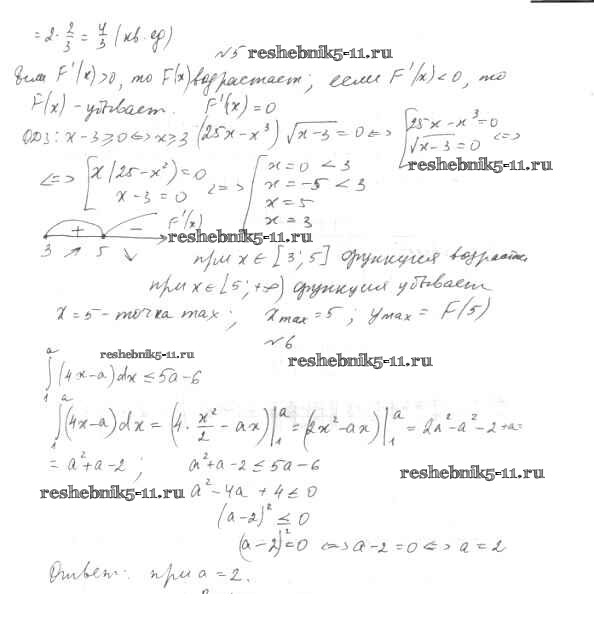 = 2 · 2/3 = 4/3 (кв. ед)
№5 reshebnik5-11.ru
Если F'(x)>0, то F(x) возрастает; если F'(x)<0, то
F(x) - убывает. F'(x) = 0
ОДЗ: x-3≥0 <=> x≥3 (25x-x³) √(x-3) = 0 <=> [ 25x-x³=0 √(x-3) = 0 <=>
reshebnik5-11.ru
<=> [ x(25-x²)=0 x-3=0 <=> [ x=0 <3 x=-5 <3 x=5 x=3
+ - F'(x) reshebnik5-11.ru
3 ↗ 5 ↘ при x∈[3;5] функция возрастает
при x∈[5;+∞) функция убывает
x=5 - точка max; x max = 5; y max = F(5)
№6
reshebnik5-11.ru reshebnik5-11.ru
∫₁ᵃ (4x-a)dx ≤ 5a-6
∫₁ᵃ (4x-a)dx = (4· x²/2 - ax)|₁ᵃ = (2x²-ax)|₁ᵃ = 2a²-a²-2+a=
= a²+a-2; a²+a-2 ≤ 5a-6
reshebnik5-11.ru
reshebnik5-11.ru a²-4a+4 ≤ 0
(a-2)² ≤ 0
(a-2)²=0 <=> a-2=0 <=> a=2
Ответ: при a=2.